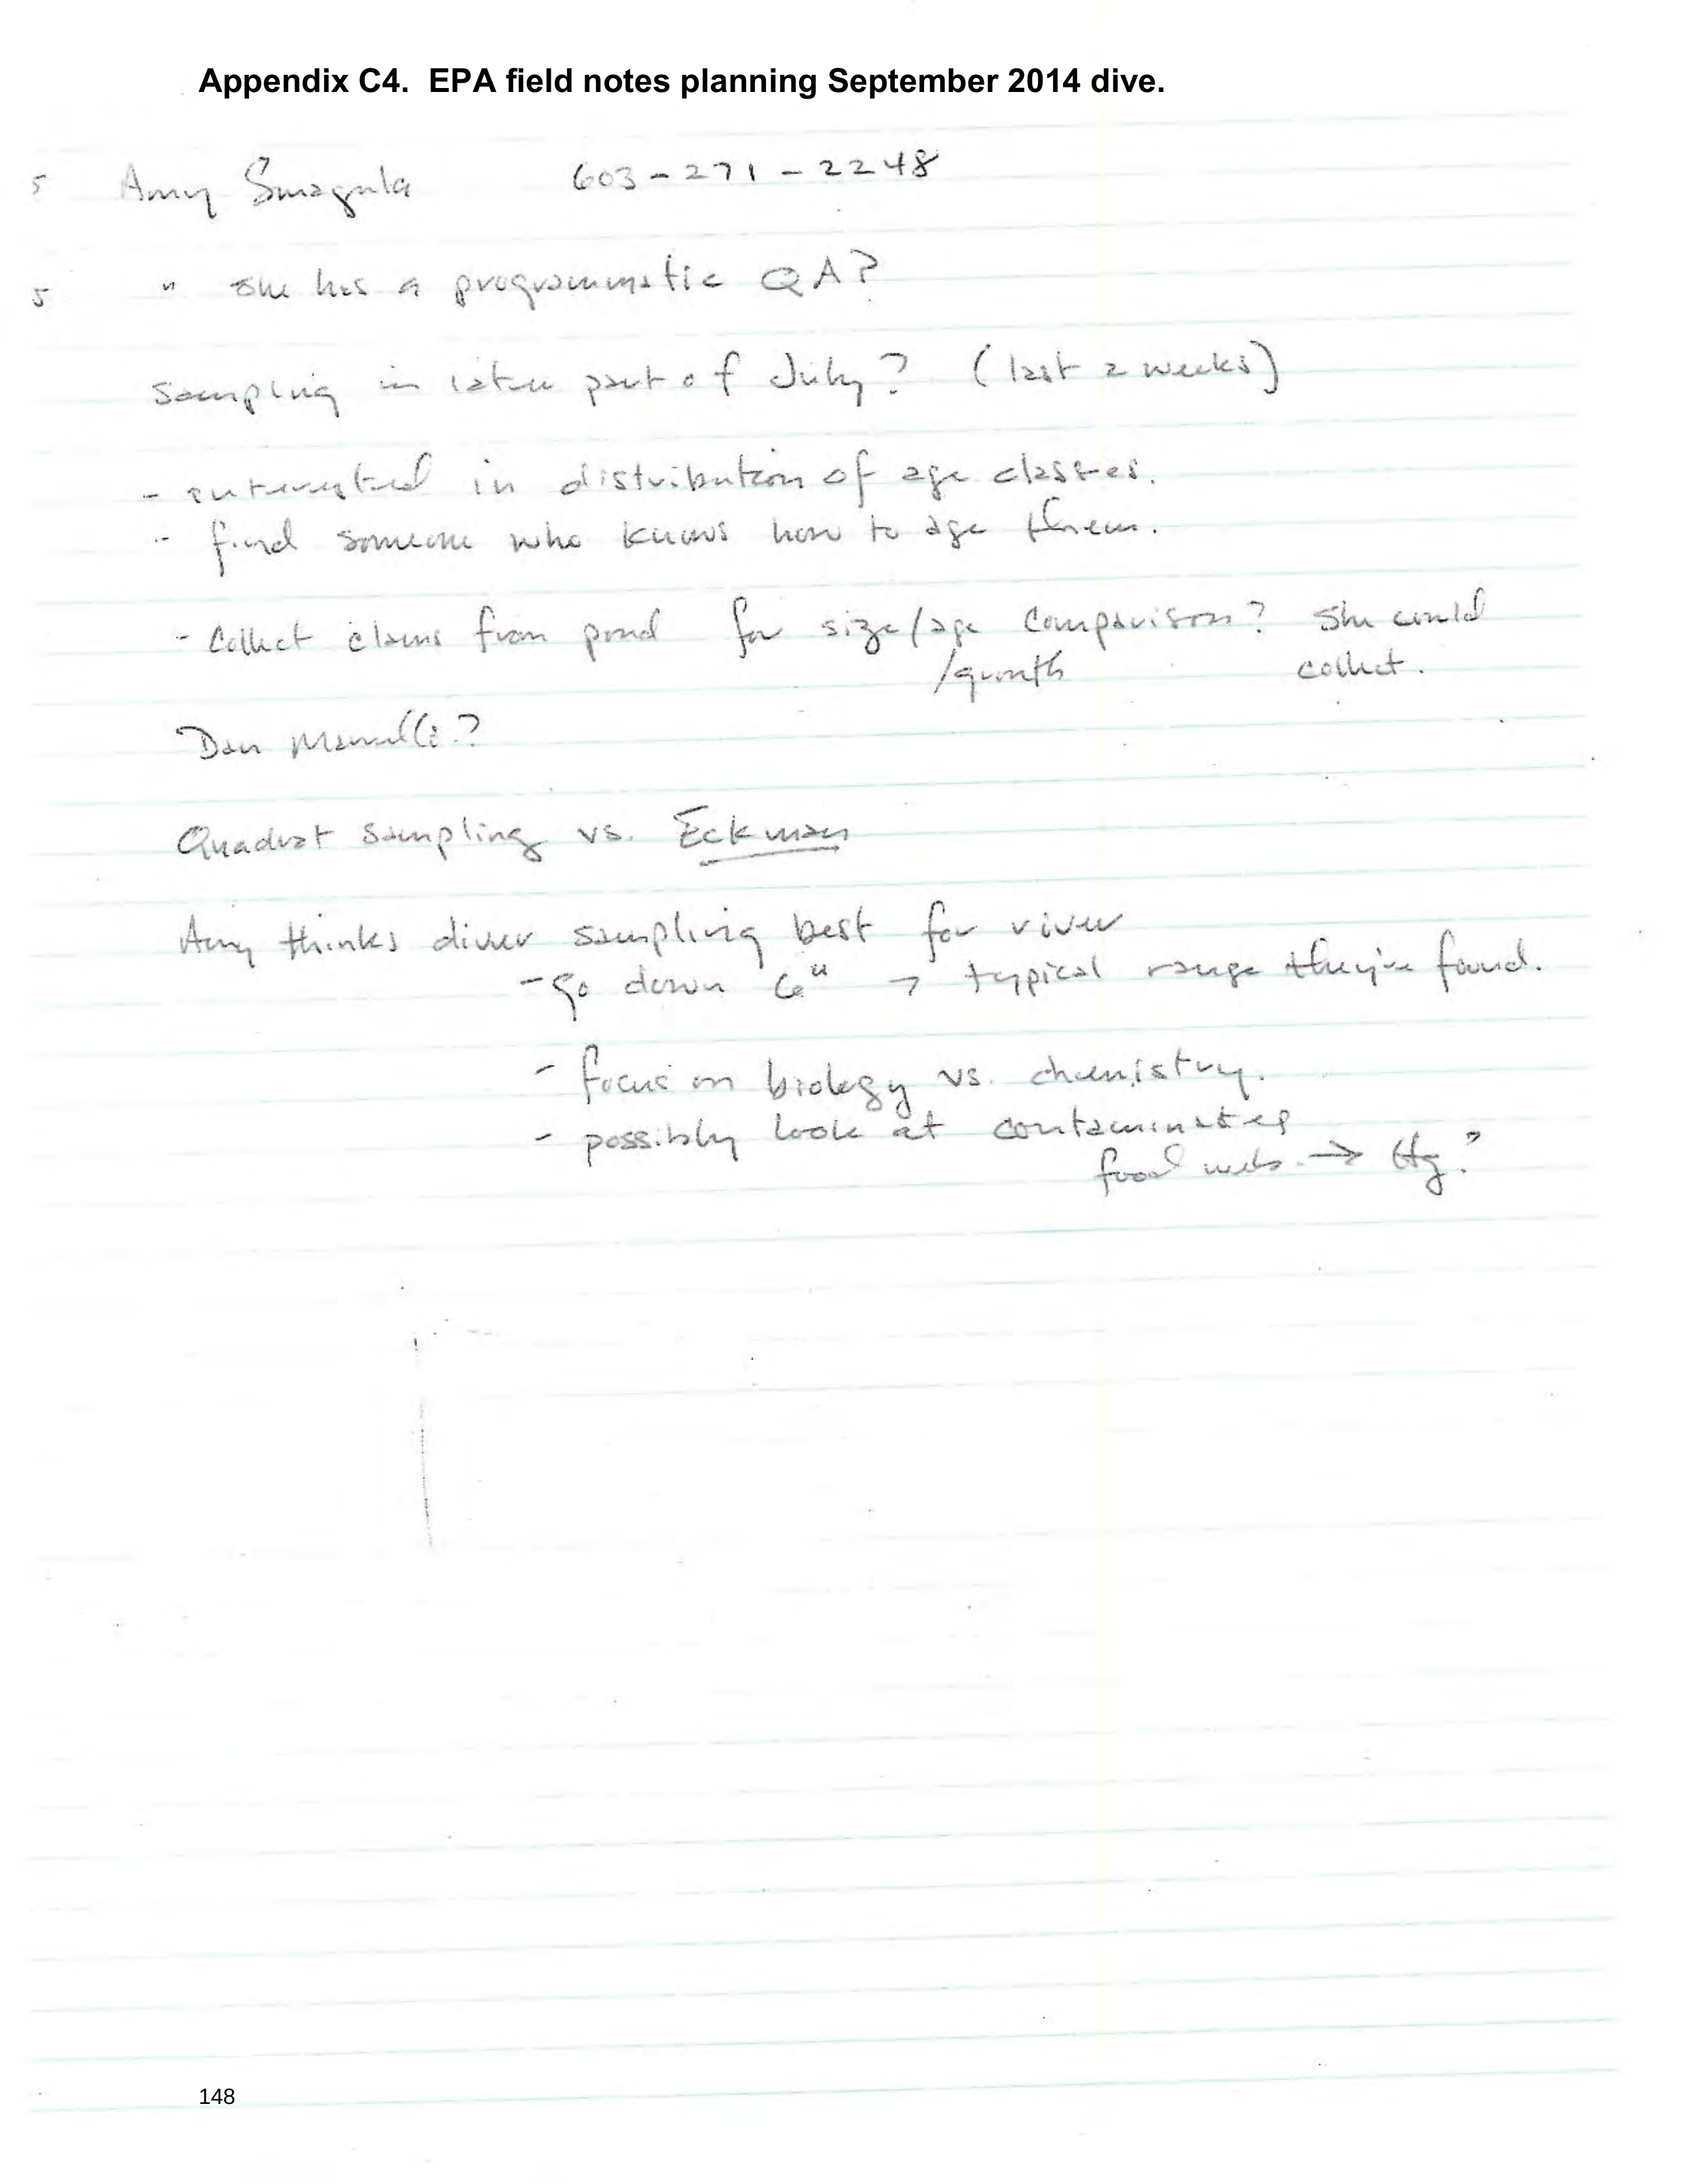 Appendix C4.  EPA field notes planning September 2014 dive.
5 Amy Smagula 603-271-2248
5 " She has a programmatic QA?
Sampling in later part of July? (last 2 weeks)
- interested in distribution of age classes.
- find someone who knows how to age them.
- Collect clams from pond for size/age comparison? She could
/growth collect.
Dan ?
Quadrat sampling vs. Eckman
Amy thinks diver sampling best for river
- go down 6" → typical range they've found.
- focus on biology vs. chemistry.
- possibly look at contaminates
food web → Hg?
148